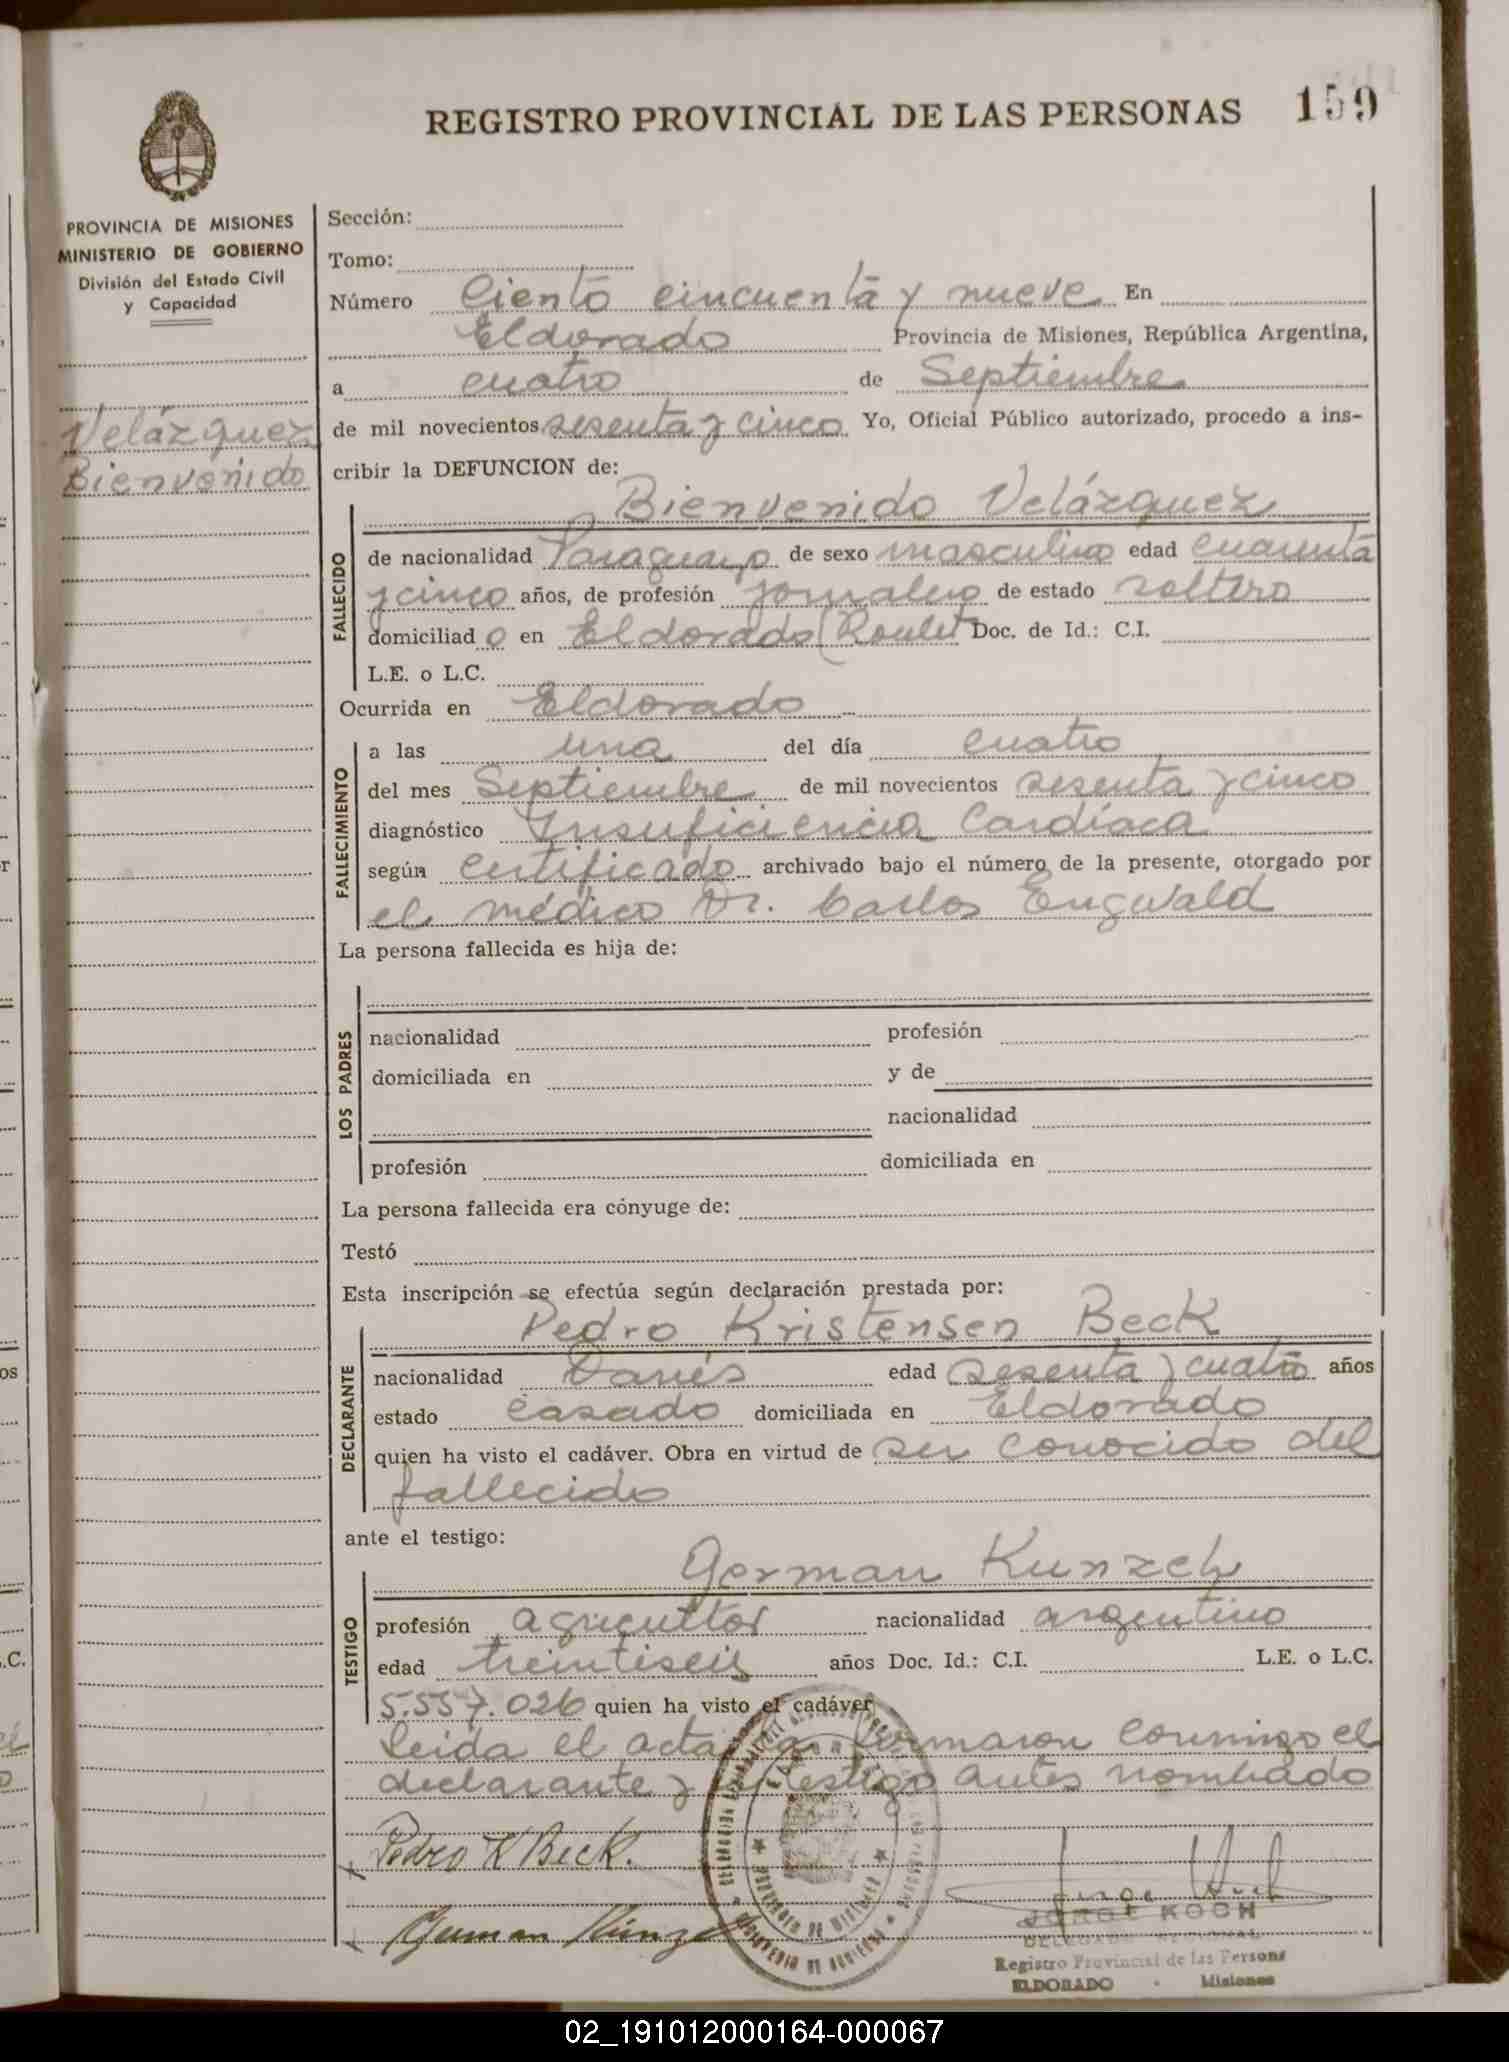 REGISTRO PROVINCIAL DE LAS PERSONAS 159
PROVINCIA DE MISIONES
MINISTERIO DE GOBIERNO
División del Estado Civil
y Capacidad
Velázquez
Bienvenido
Sección:
Tomo:
Número Ciento cincuenta y nueve En
Eldorado Provincia de Misiones, República Argentina,
a cuatro de Septiembre
de mil novecientos sesenta y cinco Yo, Oficial Público autorizado, procedo a ins-
cribir la DEFUNCION de:
Bienvenido Velázquez
FALLECIDO
de nacionalidad Paraguayo de sexo masculino edad cuarenta
y cinco años, de profesión jornalero de estado soltero
domiciliad o en Eldorado (Roulet Doc. de Id.: C.I.
L.E. o L.C.
Ocurrida en Eldorado
FALLECIMIENTO
a las una del día cuatro
del mes Septiembre de mil novecientos sesenta y cinco
diagnóstico Insuficiencia Cardíaca
según certificado archivado bajo el número de la presente, otorgado por
el médico Dr. Carlos Engwald
La persona fallecida es hija de:
LOS PADRES
nacionalidad profesión
domiciliada en y de
nacionalidad
profesión domiciliada en
La persona fallecida era cónyuge de:
Testó
Esta inscripción se efectúa según declaración prestada por:
Pedro Kristensen Beck
DECLARANTE
nacionalidad Danés edad sesenta y cuatro años
estado casado domiciliada en Eldorado
quien ha visto el cadáver. Obra en virtud de ser conocido del
fallecido
ante el testigo:
German Kunzch
TESTIGO
profesión agricultor nacionalidad argentino
edad treintiseis años Doc. Id.: C.I. L.E. o L.C.
5.557.026 quien ha visto el cadáver
Leida el acta la firmaron conmigo el
declarante y testigo antes nombrado
Pedro K Beck.
German Künz
JORGE KOCH
DELEGADO REGIONAL
Registro Provincial de las Persons
ELDORADO - Misiones
PROVINCIA DE MISIONES
MINISTERIO DE GOBIERNO
02_191012000164-000067